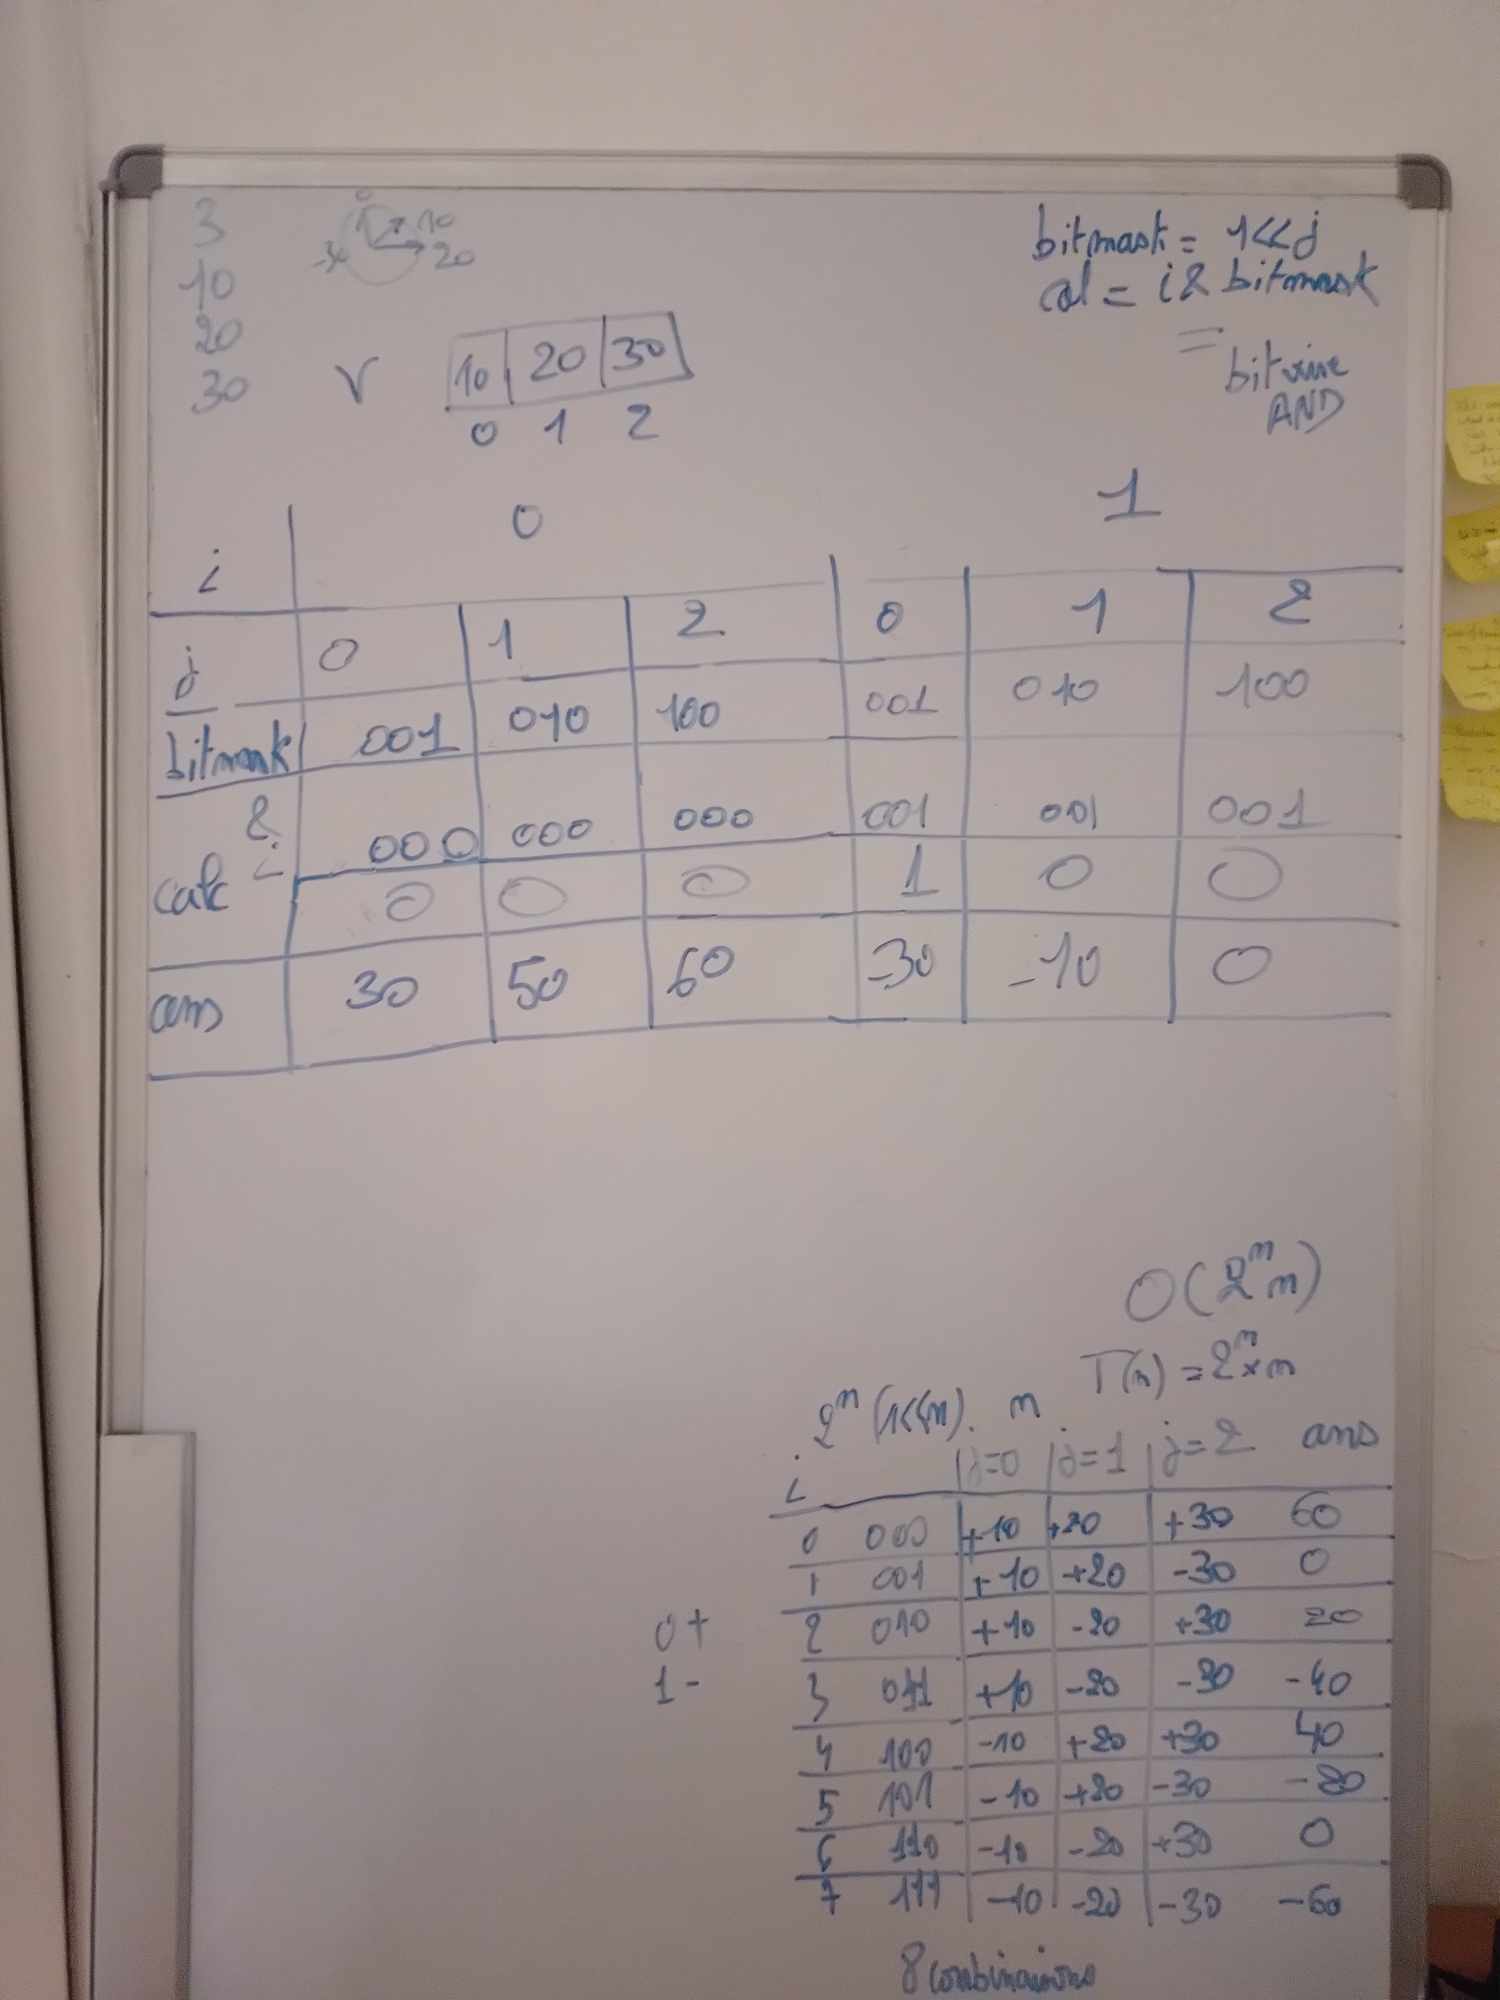 3
10
20
30
0
10
20
V 10 20 30
0 1 2
bitmask = 1<<j
cal = i & bitmask
bitwise
AND
i 0 1
j 0 1 2 0 1 2
bitmask 001 010 100 001 010 100
& i 000 000 000 001 001 001
calc 0 0 0 1 0 0
ans 30 50 60 -30 -10 0
O(2^n n)
T(n) = 2^n × n
2^n (1<<n) . n
i j=0 j=1 j=2 ans
0 000 +10 +20 +30 60
1 001 +10 +20 -30 0
2 010 +10 -20 +30 20
3 011 +10 -20 -30 -40
4 100 -10 +20 +30 40
5 101 -10 +20 -30 -20
6 110 -10 -20 +30 0
7 111 -10 -20 -30 -60
0 +
1 -
8 combinaisons